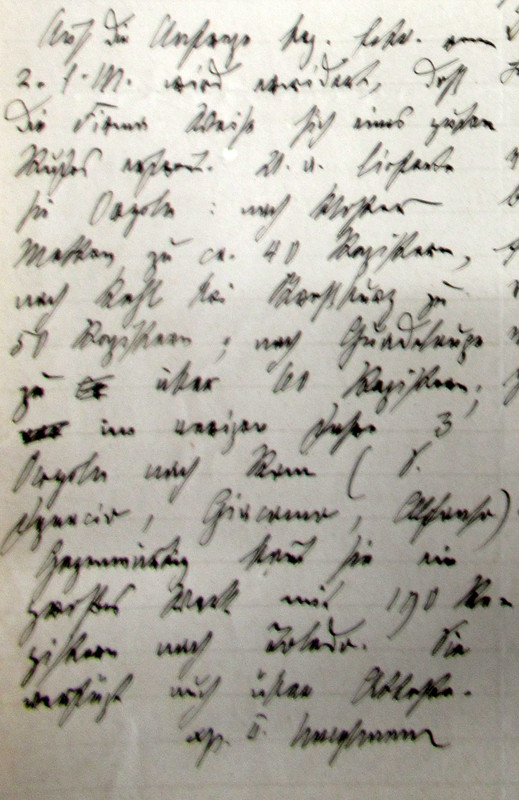 Auf die Anfrage bez. vom
2. l. M. wird erwidert, daß
die Firma Weise sich eines guten
Rufes erfreut. U. a. lieferte
sie Orgeln: nach Kloster
Metten zu ca. 40 Registern,
nach Kehl bei Straßburg zu
50 Registern; nach Guadeloupe
zu über 60 Registern;
im vorigen Jahre 3
Orgeln nach Rom (S.
Ignacio, Giacomo, Alfonso)
Gegenwärtig baut sie ein
großes Werk mit 190 Re-
gistern nach Toledo. Sie
verfügt auch über Atteste.